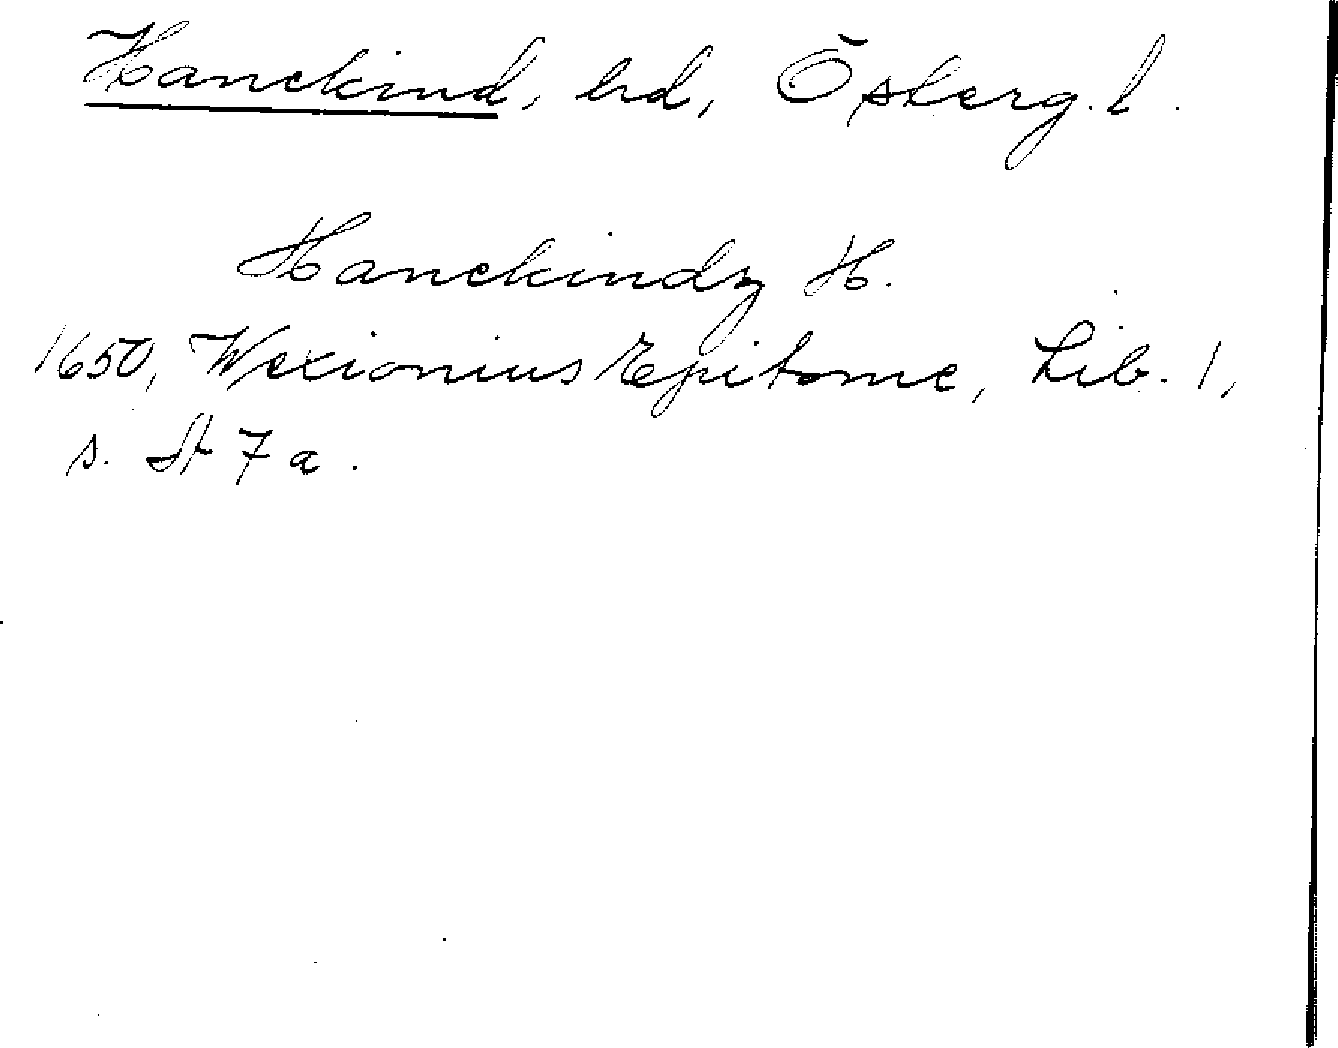 Hanekind, hd, Ösberg. l.
Hanekindz H.
1650, Wexionius Epitome, Lib. 1,
s. St 7 a.